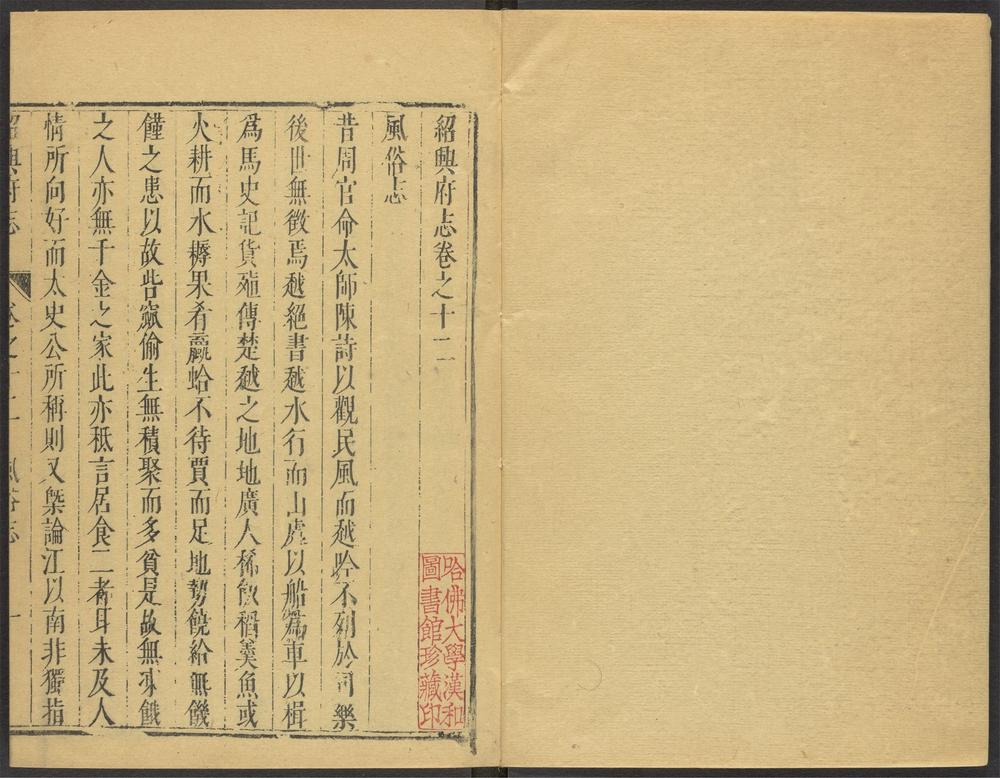 紹興府志卷之十二
風俗志
昔周官命太師陳詩以觀民風而越吟不列於司樂
後世無徵焉越絕書越水行而山處以船爲車以楫
爲馬史記貨殖傳楚越之地地廣人稀飯稻羹魚或
火耕而水耨果肴蠃蛤不待賈而足地勢饒給無饑
饉之患以故呰窳偷生無積聚而多貧是故無凍餓
之人亦無千金之家此亦秪言居食二者耳未及人
情所向好而太史公所稱則又槩論江以南非獨指
紹興府志 卷之十二 風俗志 一
哈佛大學漢和
圖書館珍藏印